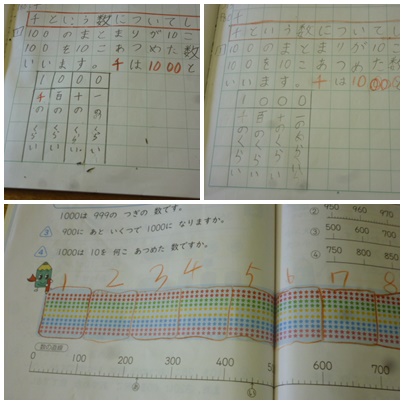 千という数についてし
100のまとまりが10こ
100を10こあつめた数
いいます。千は1000と
1 0 0 0
千 百 十 一
の の の の
くらい くらい くらい くらい
千という数についてし
100のまとまりが10こ
100を10こあつめた数
いいます。千は1000
1 0 0 0
千のくらい 百のくらい 十のくらい 一のくらい
1000は 999の つぎの 数です。
900に あと いくつで 1000に なりますか。
1000は 10を 何こ あつめた 数ですか。
② 950 960 970
③ 500 600 700
④ 750 800 850
1 2 3 4 5 6 7 8
数の直線
0 100 200 300 400 500 600 700